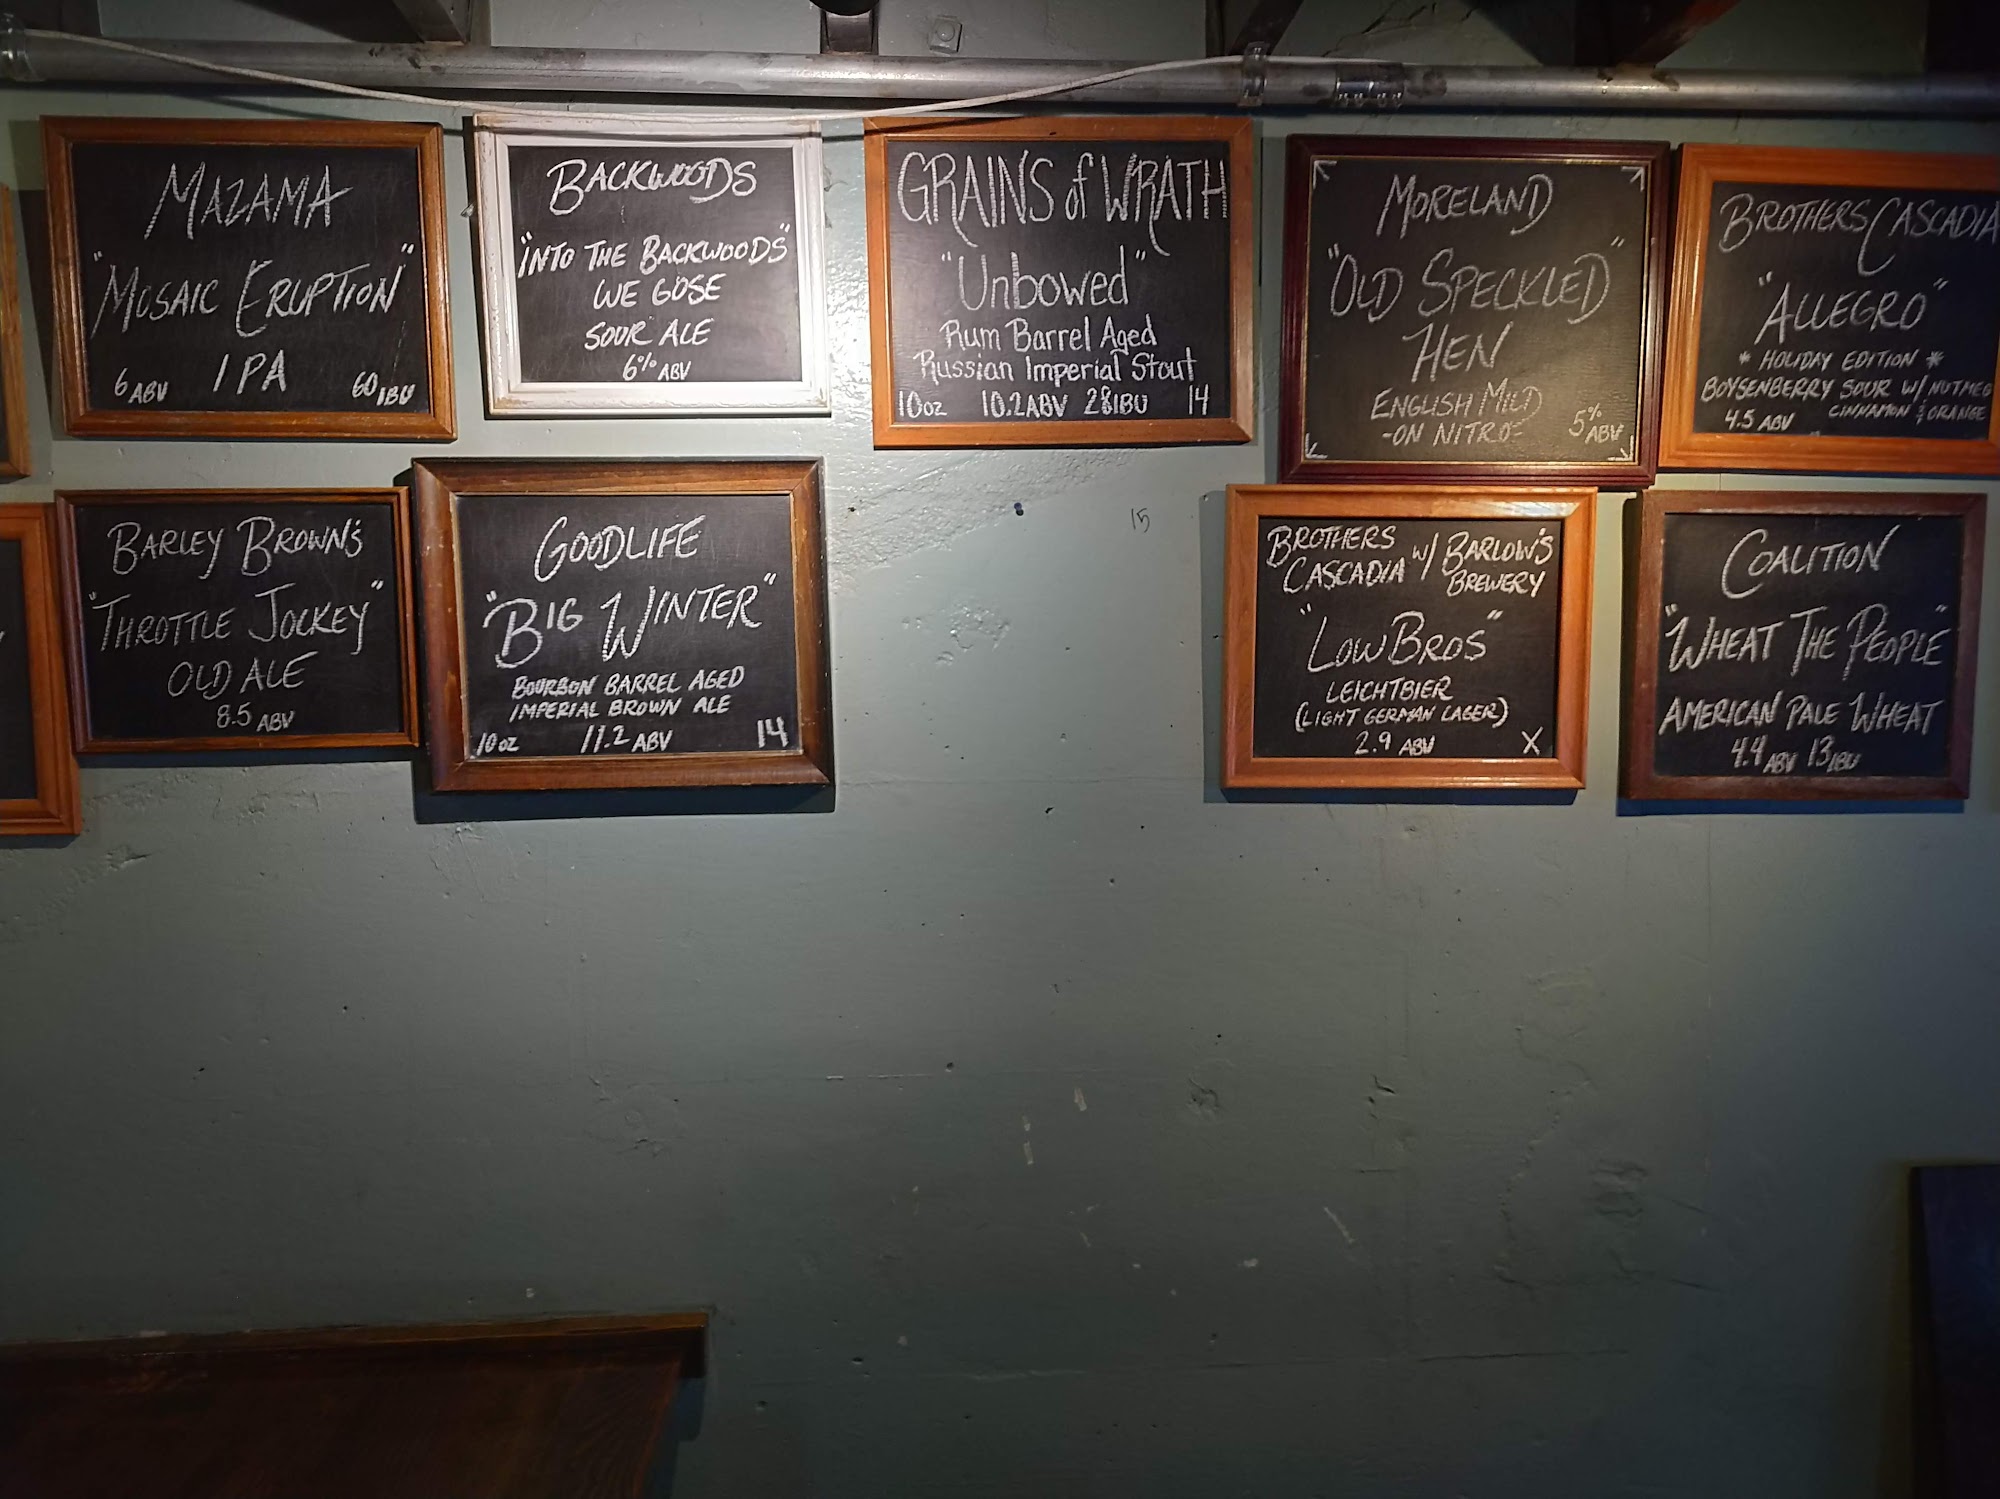 MAZAMA
"MOSAIC ERUPTION"
IPA
6 ABV 60 IBU
BACKWOODS
"INTO THE BACKWOODS"
WE GOSE
SOUR ALE
6% ABV
GRAINS of WRATH
"Unbowed"
Rum Barrel Aged
Russian Imperial Stout
10oz 10.2ABV 28IBU 14
MORELAND
"OLD SPECKLED"
HEN
ENGLISH MILD
-ON NITRO-
5% ABV
BROTHERS CASCADIA
"ALLEGRO"
* HOLIDAY EDITION *
BOYSENBERRY SOUR W/ NUTMEG
CINNAMON & ORANGE
4.5 ABV
BARLEY BROWN'S
"THROTTLE JOCKEY"
OLD ALE
8.5 ABV
GOODLIFE
"BIG WINTER"
BOURBON BARREL AGED
IMPERIAL BROWN ALE
10oz 11.2 ABV 14
15
BROTHERS CASCADIA W/ BARLOW'S BREWERY
"LOWBROS"
LEICHTBIER
(LIGHT GERMAN LAGER)
2.9 ABV X
COALITION
"WHEAT THE PEOPLE"
AMERICAN PALE WHEAT
4.4 ABV 13 IBU